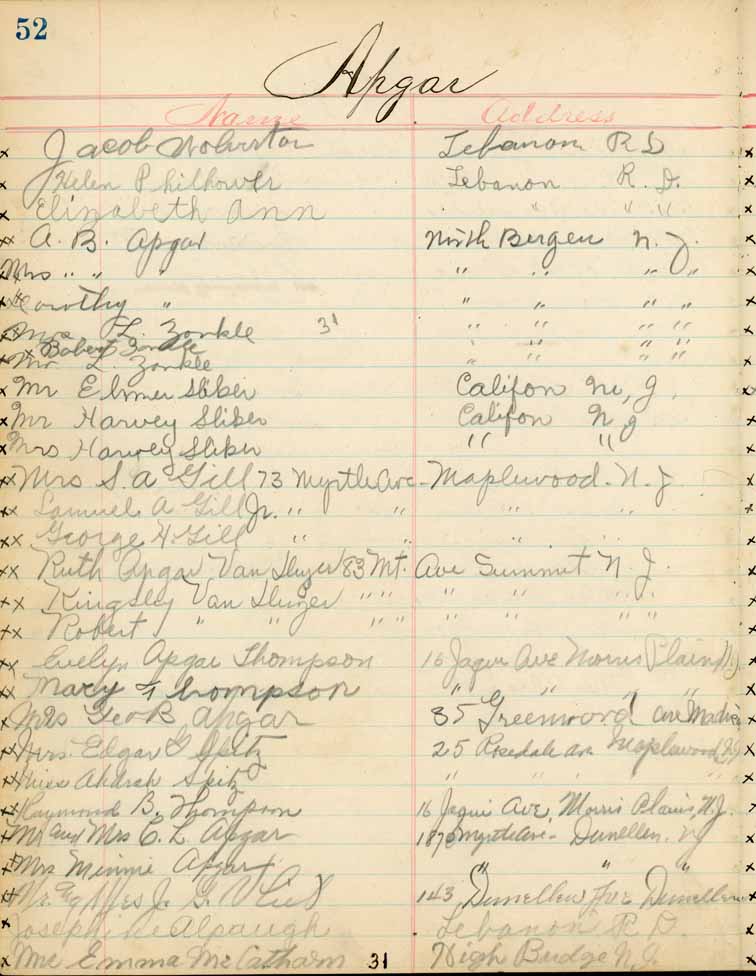 52
Apgar
Name Address
x Jacob Wolverton Lebanon R D
x Helen Philhower Lebanon R. D.
x Elizabeth Ann " " "
xx A. B. Apgar North Bergen N. J.
Mrs " " " " " " "
Dorothy " " " " "
Mrs L. Zonkle 31 " " " "
x Robert Zonkle " " " "
Mr L. Zonkle " " " "
x Mr Elmer Sliker Califon N. J.
x Mr Harvey Sliker Califon N J
x Mrs Harvey Sliker " "
xx Mrs S. A Gill 73 Myrtle Ave - Maplewood - N. J
xx Samuel A Gill Jr. " " " "
xx George H. Gill " " " "
xx Ruth Apgar Van Sluyer 83 Mt. Ave Summit N. J.
xx Kingsley Van Sluyer " " " " " "
xx Robert " " " " " " " "
xx Evelyn Apgar Thompson 16 Jaqui Ave Morris Plains NJ
xx Mary Thompson " " " "
xx Mrs Geo B. Apgar 35 Greenwood Ave Madison
xx Mrs. Edgar G Spitz 25 Rosedale Ave Maplewood N.J
xx Miss Spitz " " " "
Raymond B. Thompson 16 Jaqui Ave, Morris Plains, N.J.
Mr and Mrs C. L. Apgar Myrtle Ave - Dunellen. NJ
Mrs Minnie Apgar " " "
143 Dunellen Ave Dunellen
x Josephine Alpaugh Lebanon R. D.
x Mrs Emma McCatharn 31 High Bridge N. J.